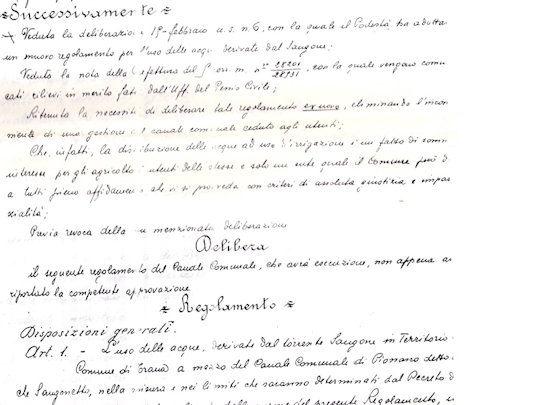 Successivamente
Veduta la deliberazione 19 febbraio u.s. n. 6, con la quale il Podestà ha adotta
un nuovo regolamento per l'uso delle acque derivate dal Sangone;
Veduta la nota della Prefettura del 5 corr. m. n° 28201/28731, con la quale vengono comu
cati rilievi in merito fatti dall'Uff. del Genio Civile;
Ritenuta la necessità di deliberare tale regolamento ex novo, eliminando l'incon
mente di una gestione canale comunale ceduto agli utenti;
Che, infatti, la distribuzione delle acque ad uso d'irrigazione è un fatto di somm
interesse per gli agricoltori utenti delle stesse e solo un ente quale il Comune può d
a tutti pieno affidamento che vi si provveda con criteri di assoluta giustizia e impar
zialità;
Previa revoca della su menzionata deliberazione
Delibera
il seguente regolamento del Canale Comunale, che avrà esecuzione, non appena av
riportato la competente approvazione
Regolamento
Disposizioni generali.
Art. 1. - L'uso delle acque, derivate dal torrente Sangone in Territorio
Comune di Trana a mezzo del Canale Comunale di detto
che Sangonetto, nella misura e nei limiti che saranno determinati dal Decreto d
del presente Regolamento,